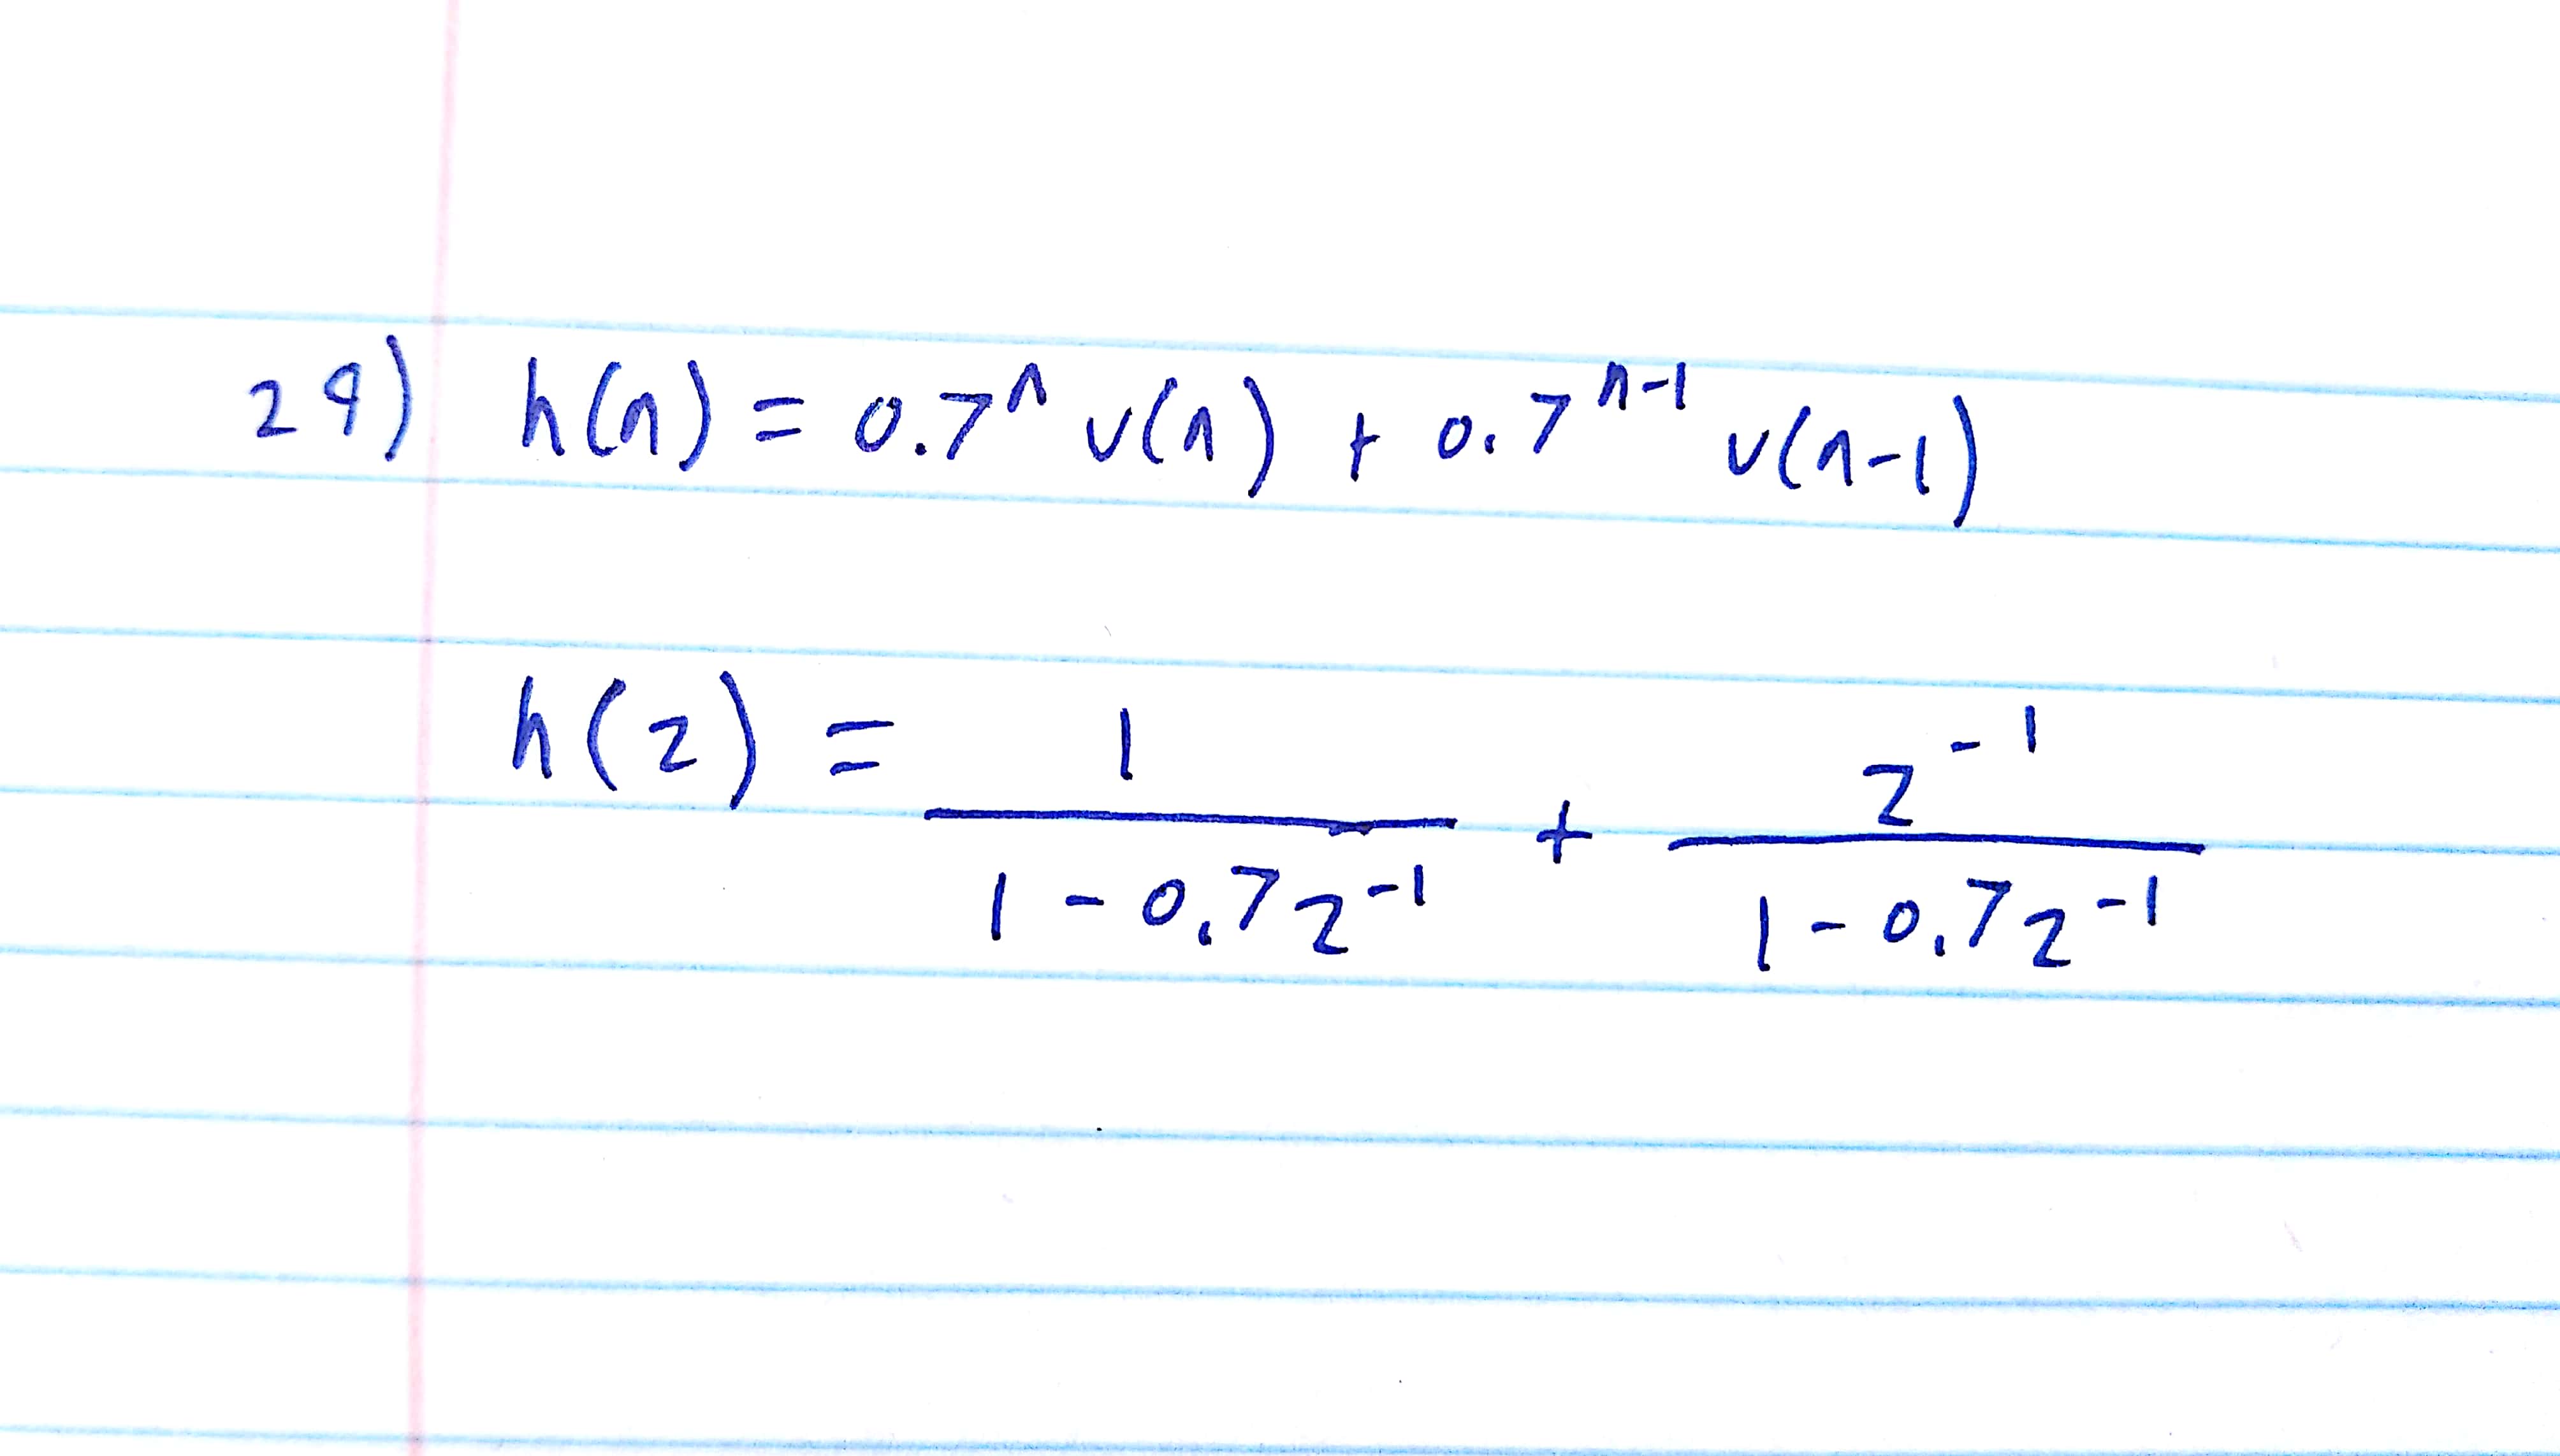 29) h(n) = 0.7^n u(n) + 0.7^(n-1) u(n-1)
h(z) = 1/(1 - 0.7z^-1) + z^-1/(1 - 0.7z^-1)